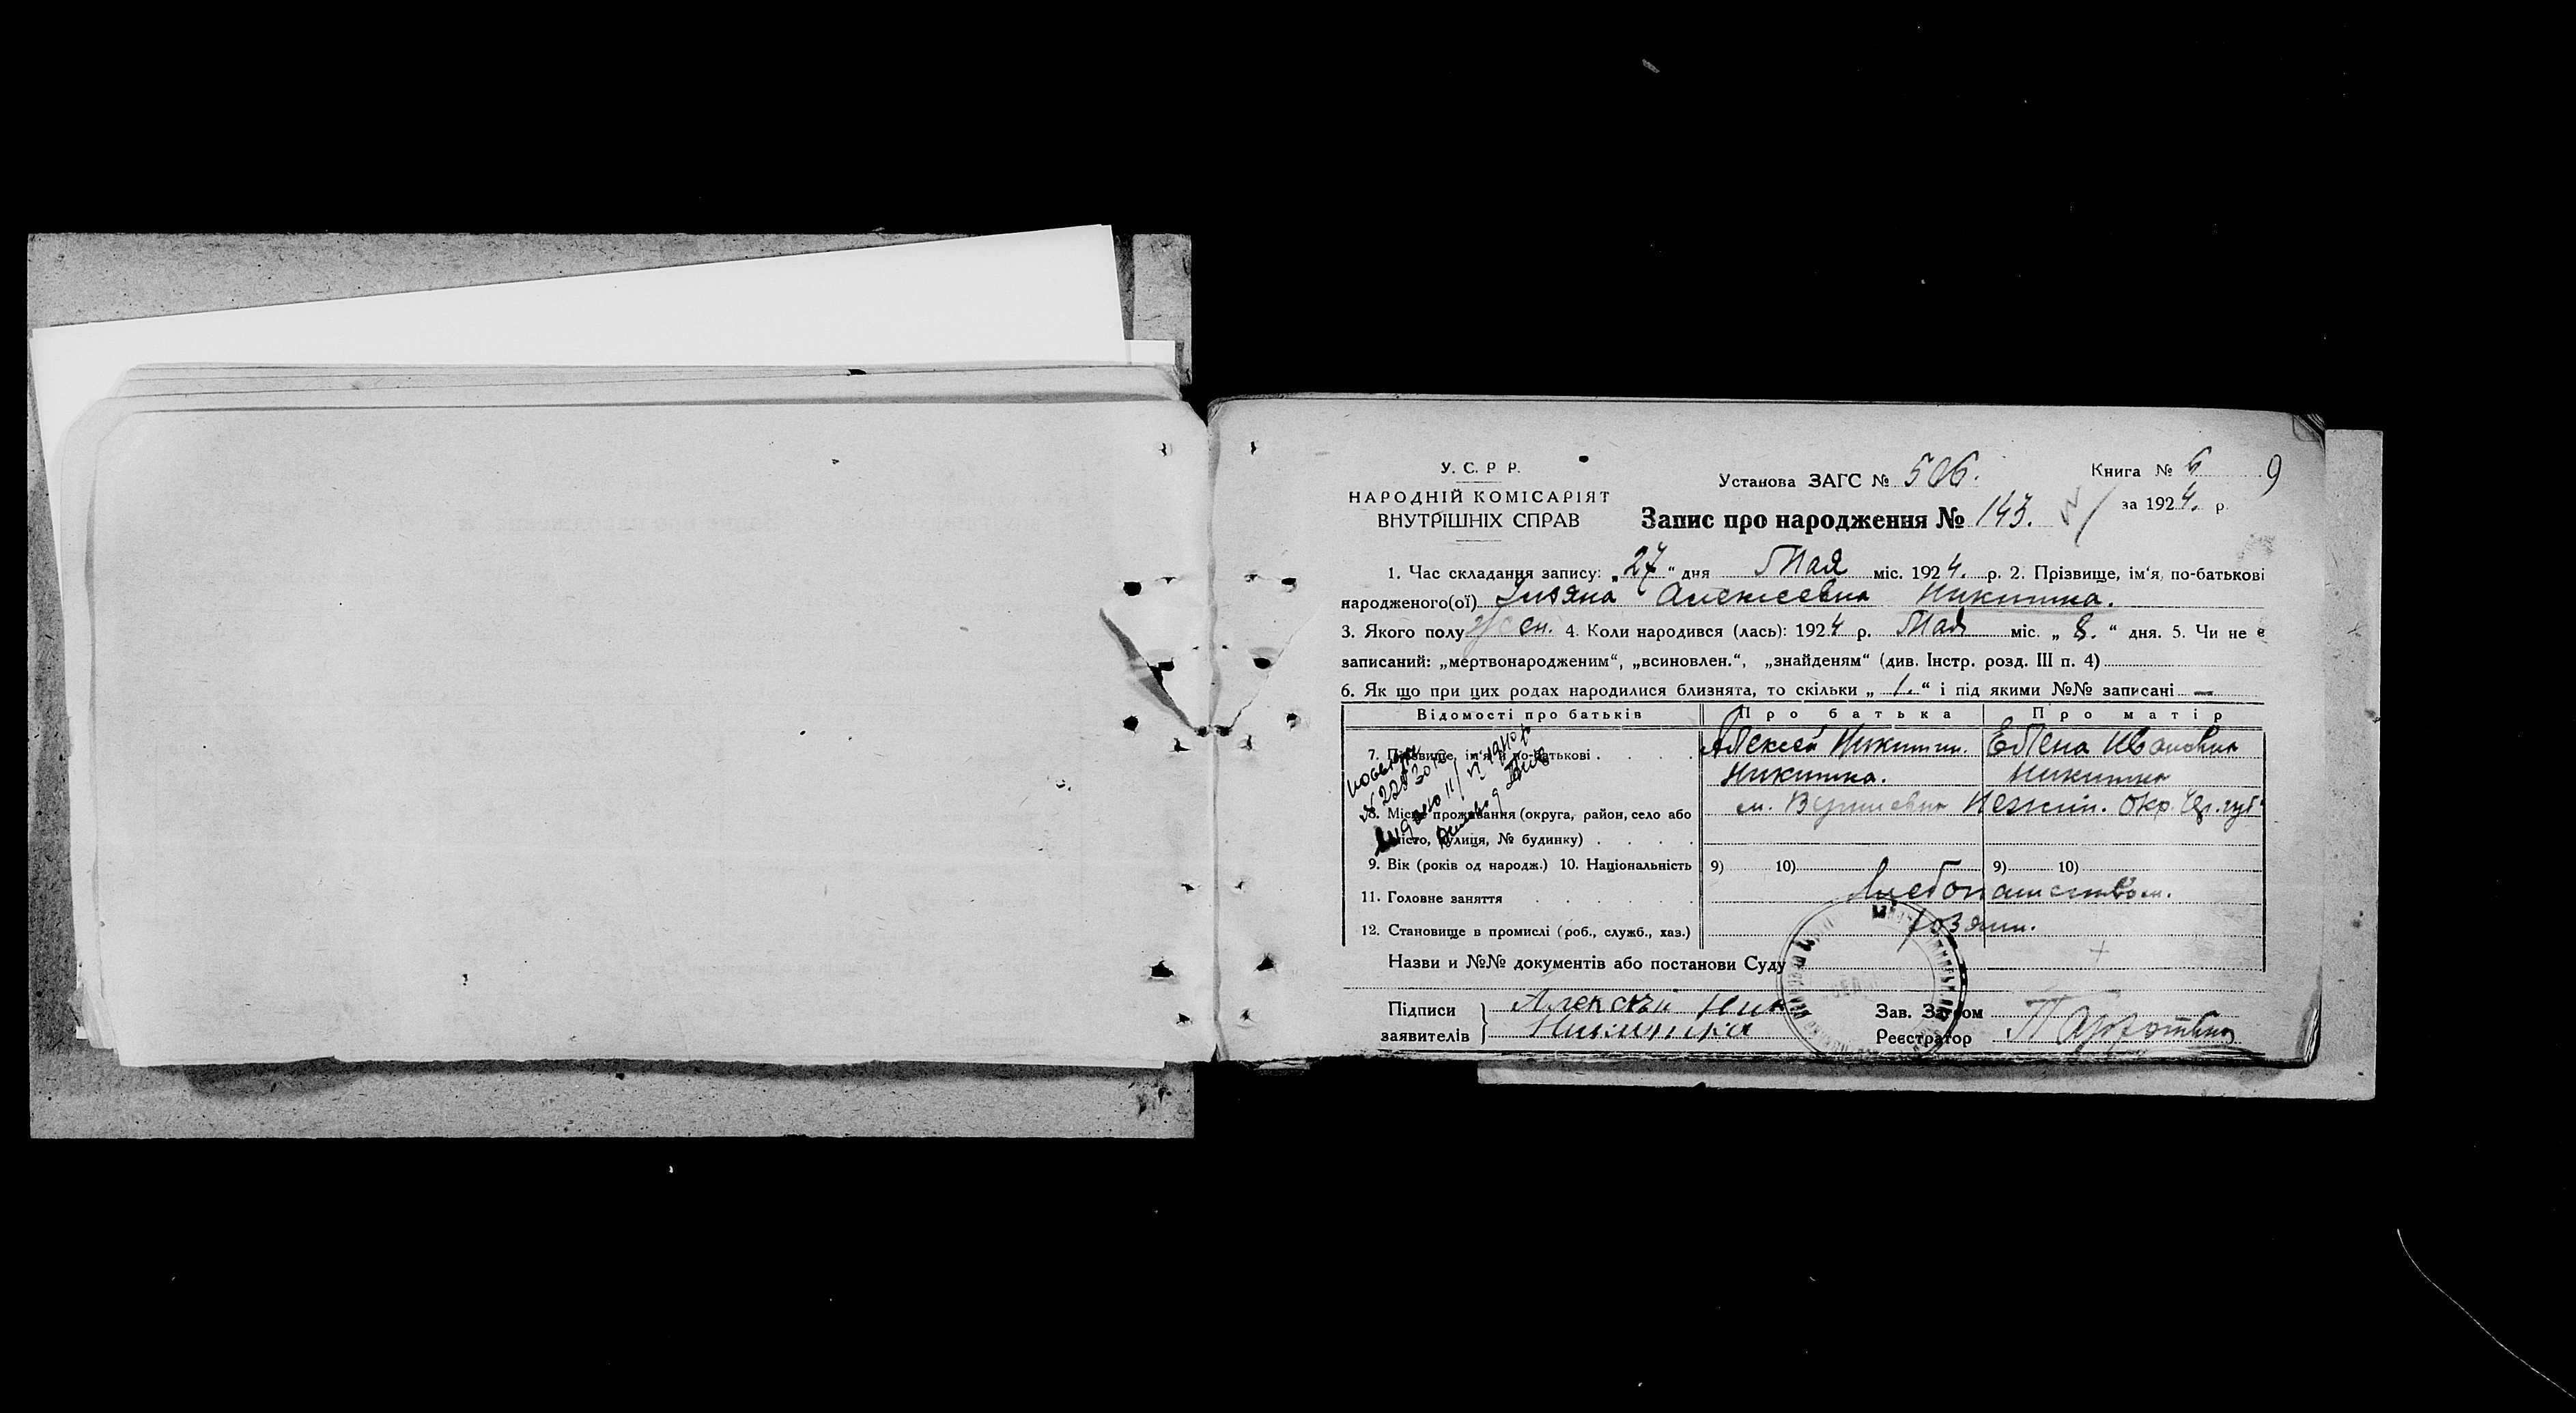 У. С. Р Р.
НАРОДНІЙ КОМІСАРІЯТ
ВНУТРІШНІХ СПРАВ
Установа ЗАГС № 506.
Книга № 6 9
за 1924. р.
Запис про народження № 143.
1. Час складання запису: „27“ дня Мая міс. 1924. р. 2. Прізвище, ім'я, по-батькові
народженого(ої) Алексеевна Никитина.
3. Якого полу жен. 4. Коли народився (лась): 1924 р. Мая міс. „8.“ дня. 5. Чи не є
записаний: „мертвонародженим“, „всиновлен.“, „знайденям“ (див. Інстр. розд. III п. 4)
6. Як що при цих родах народилися близнята, то скільки „1.“ і під якими №№ записані —
Відомості про батьків Про батька Про матір
7. Прізвище, ім'я й по-батькові Алексей Никитин. Елена Ивановна
Никитина
8. Місце проживання (округа, район, село або м. Нежин. Окр. Чер. губ.
місто, вулиця, № будинку)
9. Вік (років од народж.) 10. Національність 9) 10) 9) 10)
11. Головне заняття Хлебопашеством.
12. Становище в промислі (роб., служб., хаз.) Хозяин.
Назви и №№ документів або постанови Суду
Підписи Алексей
заявителів
Зав. Загсом
Реєстратор